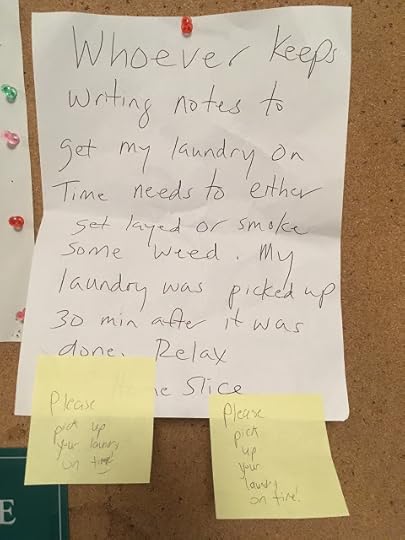 Whoever keeps
writing notes to
get my laundry on
Time needs to either
get layed or smoke
some weed. My
laundry was picked up
30 min after it was
done. Relax
Slice
Please
pick up
your laundry
on time
Please
pick
up
your
laundry
on time!
E